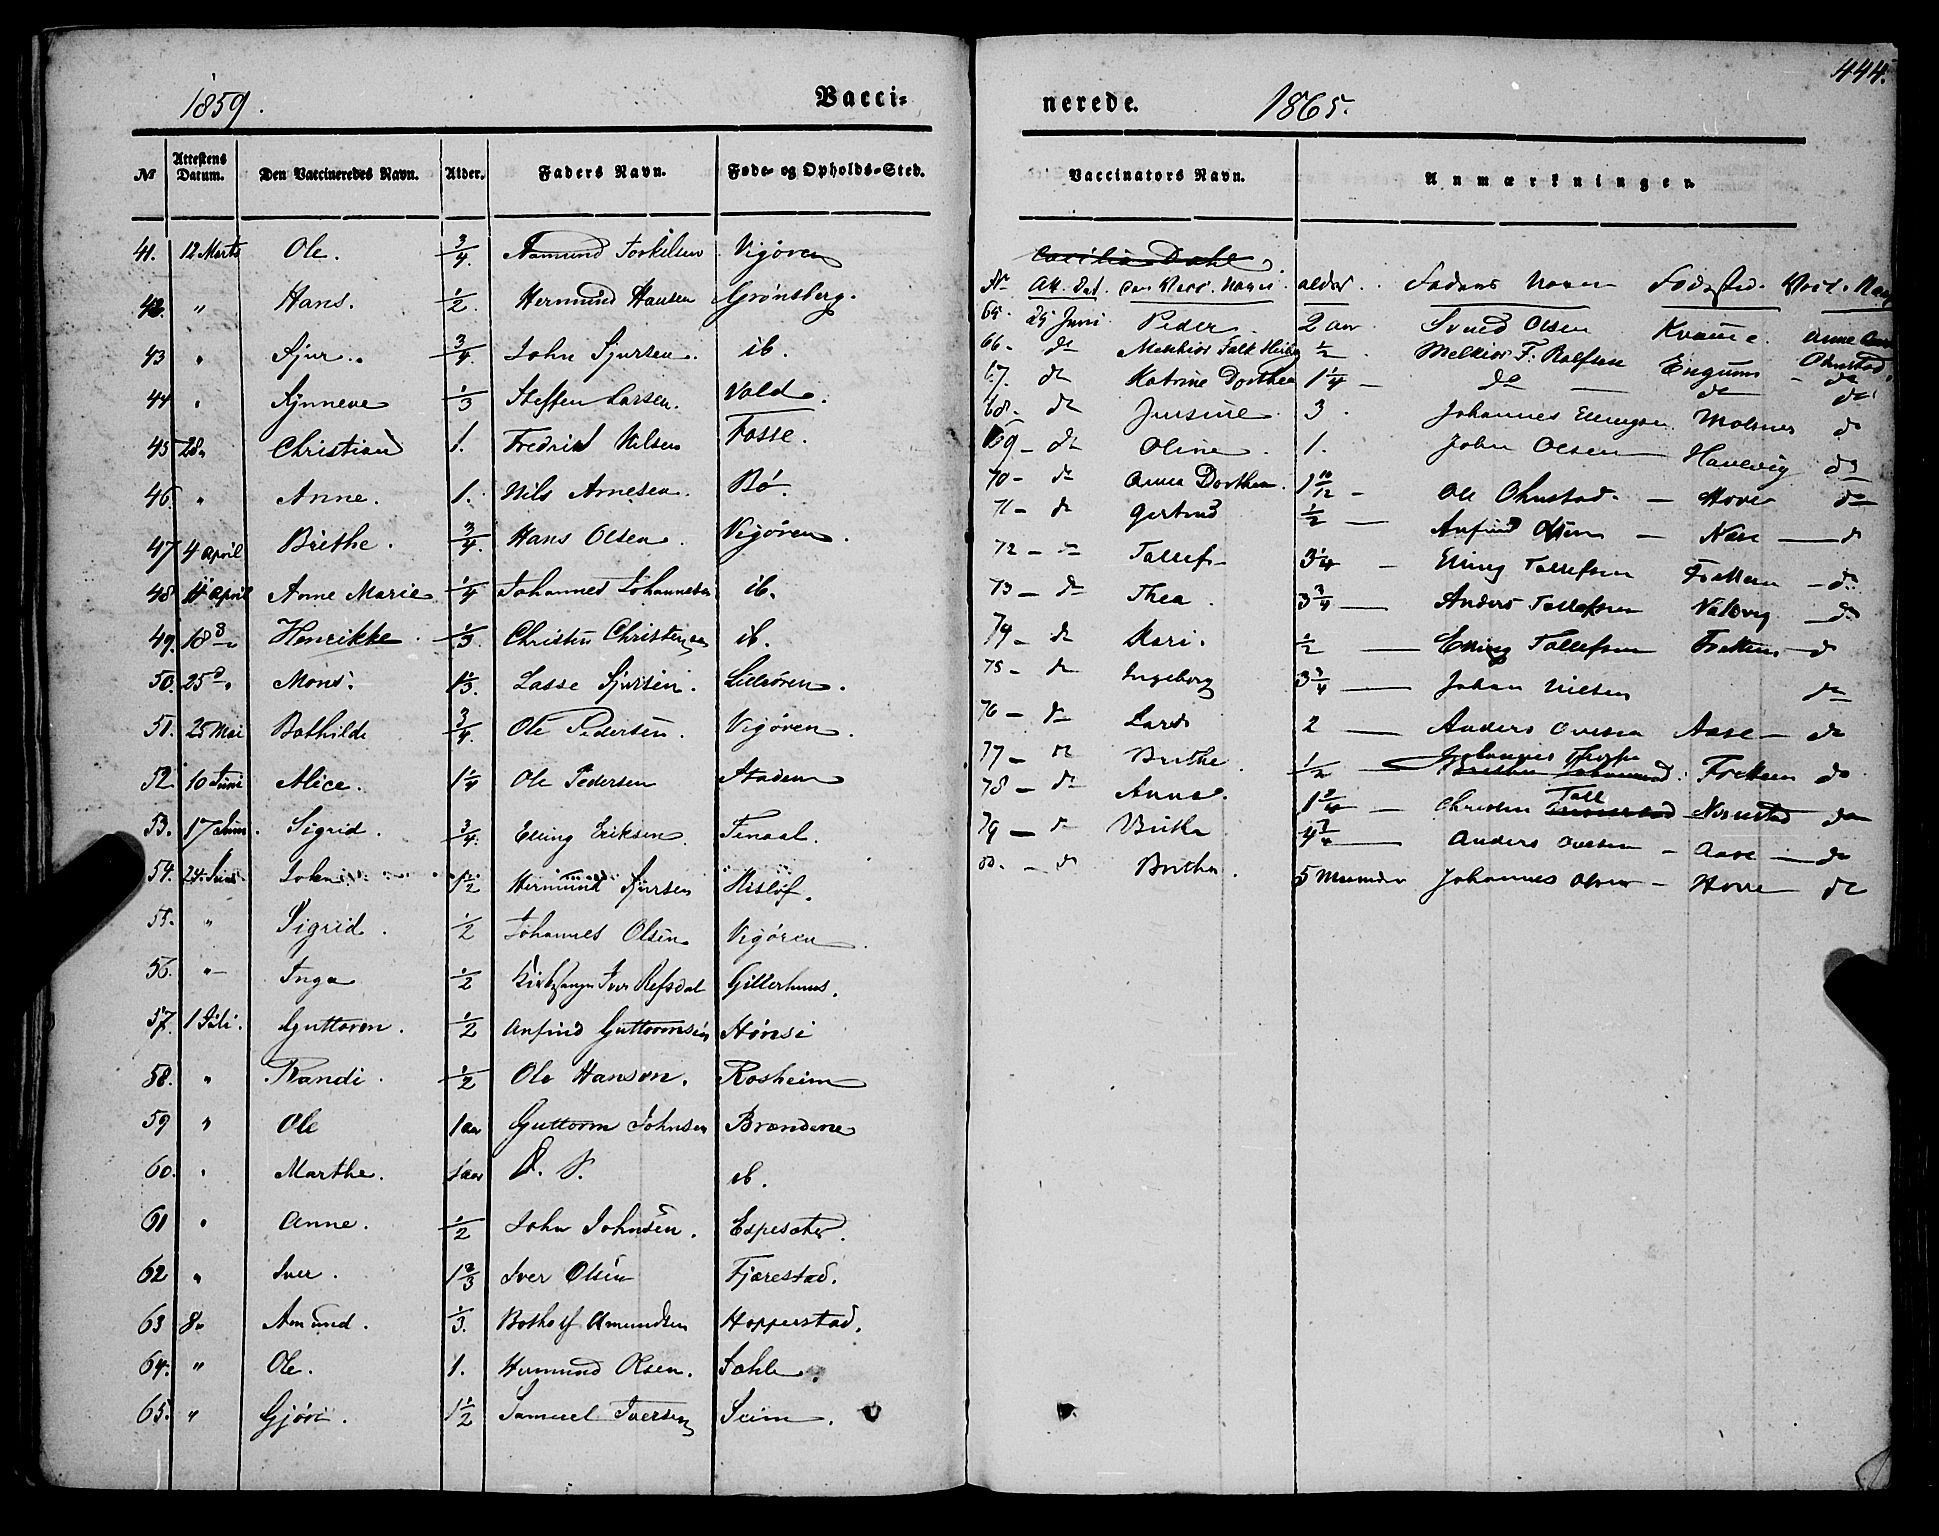 1859. Vacci-
№ Attestens Datum. Den Vaccineredes Navn. Alder. Faders Navn. Føde- og Opholds-Sted.
41. 12 Marts Ole. 3/4. Aamund Torkilsen Vigøren
42. " Hans. 1/2. Hermund Hansen Grønsberg.
43 " Sjur. 3/4 John Sjursen. ib.
44 " Synneve 1/3 Steffen Larsen. Vold.
45 28 " Christian 1. Fredrik Nilsen Fosse.
46. " Anne. 1. Nils Arnesen. Bø.
47 4 April Brithe. 3/4. Hans Olsen. Vigøren.
48 11 April Anne Marie 1/4 Johannes Johannesen ib.
49. 18 " Henrikke. 1/3. Christen Christensen ib.
50. 25 " Mons. 1 1/3. Lasse Sjursen. Lilleøren.
51. 25 Mai Bothilde 3/4. Ole Pedersen. Vigøren.
52. 10 Juni Alice. 1 1/4 Ole Pedersen Stadem
53. 17 Juni. Sigrid. 3/4. Elling Eriksen. Tenaal.
54. 24. Juni John 1 1/2 Hermund Sjursen Hisløf.
55. " Sigrid. 1/2 Johannes Olsen Vigøren.
56. " Inga 1/2 Kirkesanger Iver Refsdal Gillerhuus.
57. 1 Juli. Guttorm. 1/2 Anfind Guttormsen Hønsi
58. " Randi. 1/2 Ole Hanson. Rosheim
59 " Ole 1 aar Guttorm Johnsen Brændene
60. " Marthe. 1 aar D. S. ib.
61 " Anne. 1/2 John Johnsen. Espesæter.
62 " Iver. 1 2/3 Iver Olsen Fjærestad.
63 8 " Amund. 1/3. Botholf Amundsen Hopperstad.
64. " Ole. 1. Hermund Olsen. Sæhle.
65. " Gjøri. 1 1/2 Samuel Iversen Seim.
nerede. 1865. 444.
Vaccinators Navn. Anmærkninger.
Cecilia Dahl.
Nr Att. Dat. Den Vacc. Navn. alder. Faders Navn Fødested. Vacc. Navn
65. 25 Juni Peder 2 aar. Svend Olsen Kvamme. Anne
66 - do Melchior Falk 1/2 - Melkior F. Rolfsen Engum - Ohnstad.
67. do Katrine Dorthea 1 1/4 - do - do do
68. do Jensine. 3. Johannes Ellingsen Molsnes do
69 - do Oline. 1. John Olsen - Hanevig do
70 - do Anna Dorthea. 1 10/12 - Ole Ohnstad. - Hove do
71 - do Gertrud 1/2 - Anfind Olsen - Næse - do
72 - do Tollef - 3 1/4 - Elling Tollefsen Fretten - do
73 - do Thea. 3 3/4 - Anders Tollefsen - do
74 - do Kari. 1/2 - Elling Tollefsen Fretten - do
75 - do Ingeborg 3 3/4 - Johan Nilsen do
76 - do Lars 2 - Anders Ovesen Aase - do
77 - do Brithe. 1/2 - Fretten do
78 - do Anna. 1 3/4 - Christen Tall Nornstad do
79 - do Brithe 4 3/4 - Anders Ovesen - Aase - do
80. - do Brithe. 5 Maaneder Johannes Olsen - Hove do